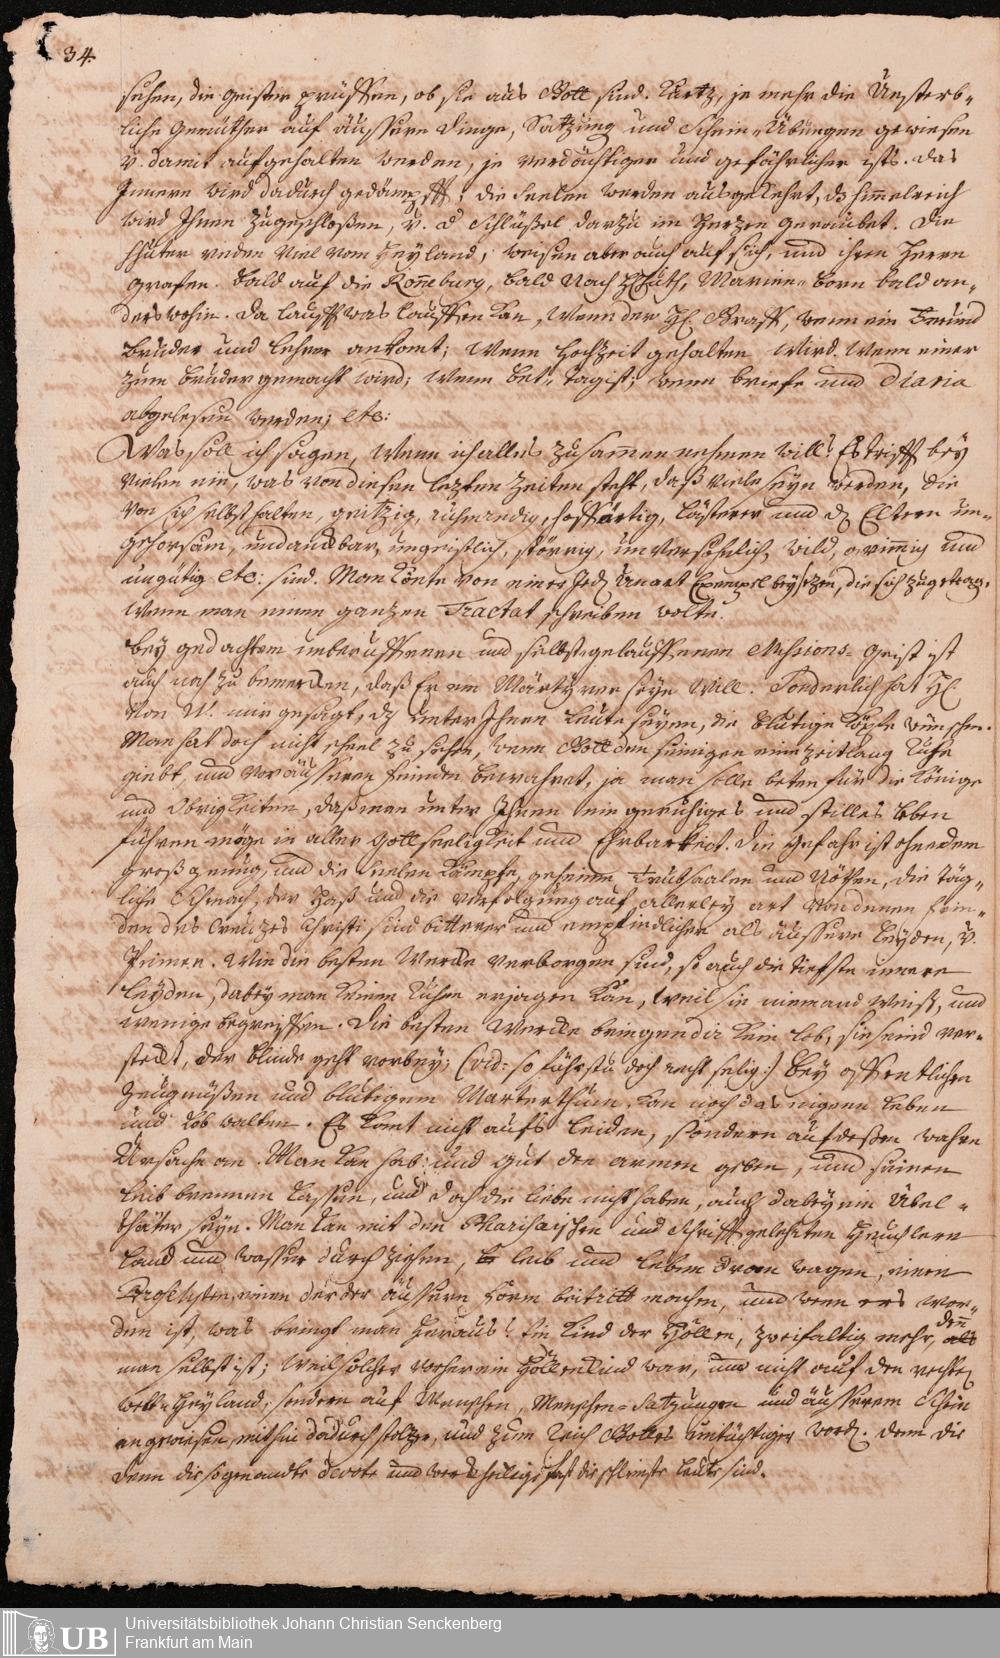 34.
sehen, die Geister prüffen, ob sie aus Gott sind. Kurtz, je mehr die Unsterb-
liche Gemüther auf äussere Dinge, Satzung und Schein-Übungen gewiesen
v. damit aufgehalten werden, je verdächtiger und gefährlicher ists. Das
Innere wird dadurch gedämpfft, die Seelen werden ausgekehrt, dz Himmelreich
wird Ihnen zugeschloßen, v. d Schlüßel darzu im Hertzen geraubet. Die
Hhuter reden viel vom Heyland; weisen aber auch auf sich, und ihren Herrn
Grafen. Bald auf die Roneburg, bald nach HHuth, Marien-born bald an-
derswohin. Da laufft was lauffen kan, Wenn der H. Graff, wenn ein
Bruder und Lehrer ankomt; Wenn Hochzeit gehalten wird. Wenn einer
zum Bruder gemacht wird; Wenn Bet-Tag ist; wenn briefe und Diaria
abgelesen werden; etc:
Was soll ich sagen, Wenn ich alles zusammen nehmen will? Es trifft bey
vielen ein, was von diesen letzten Zeiten steht, daß viele seyn werden, die
von sich selbst halten, geitzig, ruhmredig, hoffärtig, lästerer und d. Eltern un-
gehorsam, undanckbar, ungeistlich, störrig, unversöhnlich, wild, grimmig und
ungütig etc: sind. Man könte von einer jed. Unart Exempel beysetzen, die sich zugetrag.
Wenn man einen ganzen Tractat schreiben wolte.
Bey gedachtem unberuffenen und selbstgelauffenen Missions-Geist ist
auch noch zu bemercken, daß Er ein Märtyrer seyn will. Sonderlich hat H.
von W. mir gesagt, dz unter Ihnen Leute seyen, die blutige Köpfe wünschen.
Man hat doch nicht scheel zu sehen, wenn Gott den seinigen eine zeitlang Ruhe
giebt, und vor äusseren feinden bewahret, ja man solle beten für die Könige
und Obrigkeiten, daß man unter Ihnen ein geruhiges und stilles Leben
führen möge in aller Gottseeligkeit und Ehrbarkeit. Die Gefahr ist ohnedem
groß genug, und die Seelen Kämpfe, geheime Trübsaalen und Nöthen, die täg-
liche Schmach, der Haß und die verfolgung auf allerley art von denen fein-
den des Creuzes Christi sind bitterer und empfindlicher als äussere Leyden, v.
Peinen. Wie die besten Wercke verborgen sind, so auch die tiefste innere
Leyden, dabey man keinen Ruhm erjagen kan, weil sie niemand weiß, und
wenige begreiffen. Die besten Wercke bringen dir kein Lob, sie sind ver-
steckt, der blinde geht vorbey; (vid: so führstu doch recht selig:) Bey öffentlichen
Zeugnüßen und blutigem Marterthum kan noch das eigene Leben
und Lob walten. Es komt nicht aufs Leiden, sondern auf deßen wahre
Ursache an. Man kan hab und Gut den armen geben, und seinen
Leib brennen lassen, und doch die liebe nicht haben, auch dabey ein Übel-
thäter seyn. Man kan mit den Pharisäischen und Schrifftgelehrten Heuchlern
Land und Wasser durchziehen, leib und leben dran wagen, einen
Proselyten, einen der der äussern Form beitritt machen, und wenn ers wor-
den ist, was bringt man heraus? Ein Kind der Höllen, zweifaltig mehr, denn
man selbst ist; Weil solcher vorher ein Höllenkind war, und nicht auf den rechten
Heyland, sondern auf Menschen, Menschen-Satzungen und äusseren Schein
angewiesen, mithin dadurch stoltzer, und zum Reich Gottes untüchtiger word. denn die
Denn die sogenandte devote und werckheilige fast die schlimste Leute sind.
Universitätsbibliothek Johann Christian Senckenberg
Frankfurt am Main
UB